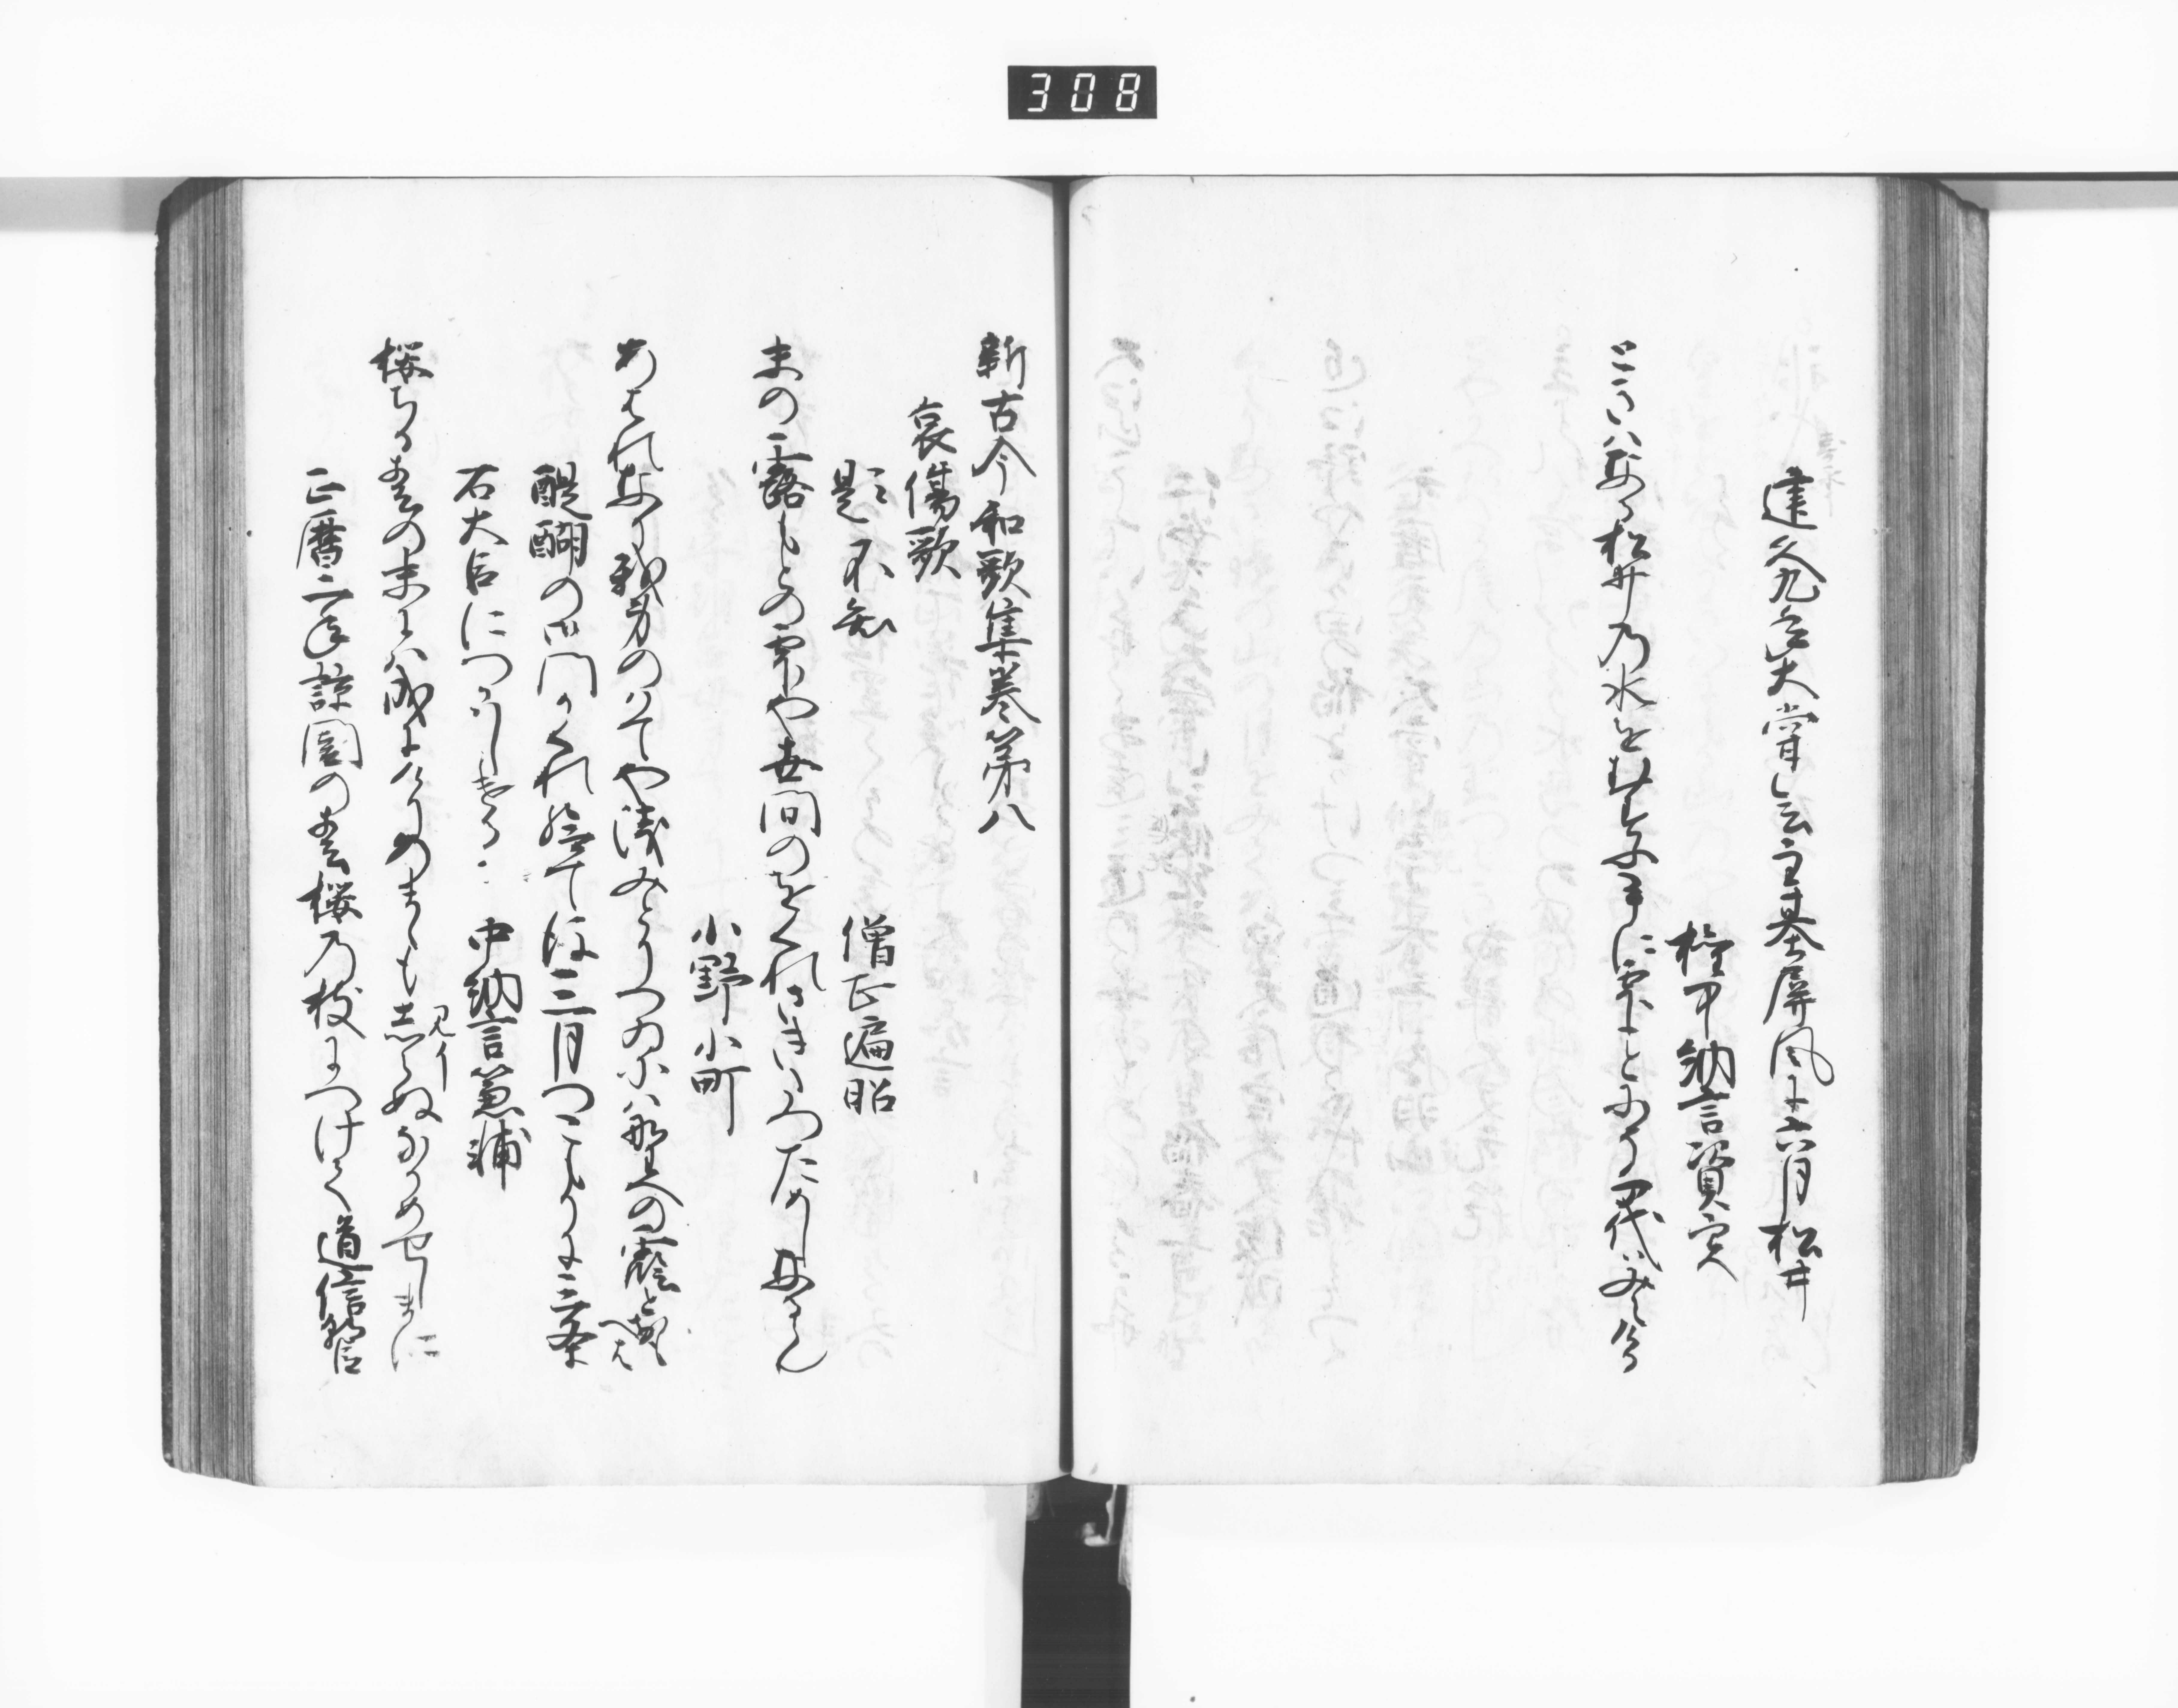 308
建久九年大嘗会主基屏風に六月松井
権中納言資実
ときはなる松井の水をむすふ手に雫ことにそ千代はみえける
新古今和歌集巻第八
哀傷歌
題不知
僧正遍昭
末の露もとの雫や世間のをくれさきたつためしなるらん
小野小町
あはれなり我身のはてや浅みとりつゐには野への霞と
へは
醍醐の御門かくれ給て後三月つこもりに三条
右大臣につかはしける
中納言兼輔
桜ちる春の末には成にけりあまゝも
見り
しらぬなかめせしまに
正暦二年諒闇の春桜の枝につけて
道信朝臣